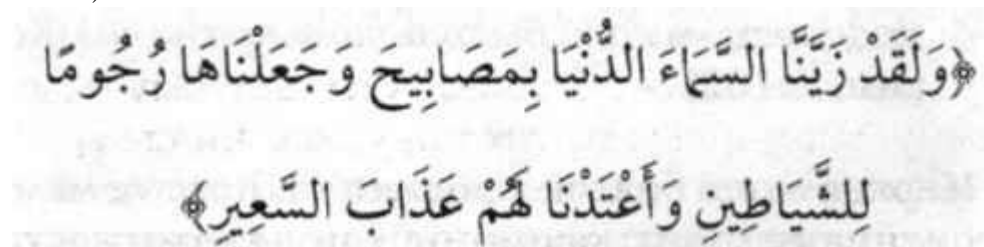 ﴿وَلَقَدْ زَيَّنَّا السَّمَاءَ الدُّنْيَا بِمَصَابِيحَ وَجَعَلْنَاهَا رُجُومًا
لِلشَّيَاطِينِ وَأَعْتَدْنَا لَهُمْ عَذَابَ السَّعِيرِ﴾